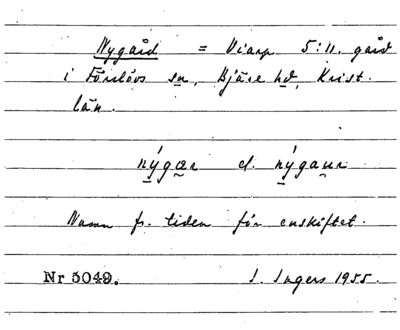 Nygård = Viarp 5:11. gård
i Förslövs sn, Bjäre hd, Krist.
län.
nýgær el. nýgaur
Namn fr. tiden för enskiftet.
Nr 5049. I. Ingers 1955.